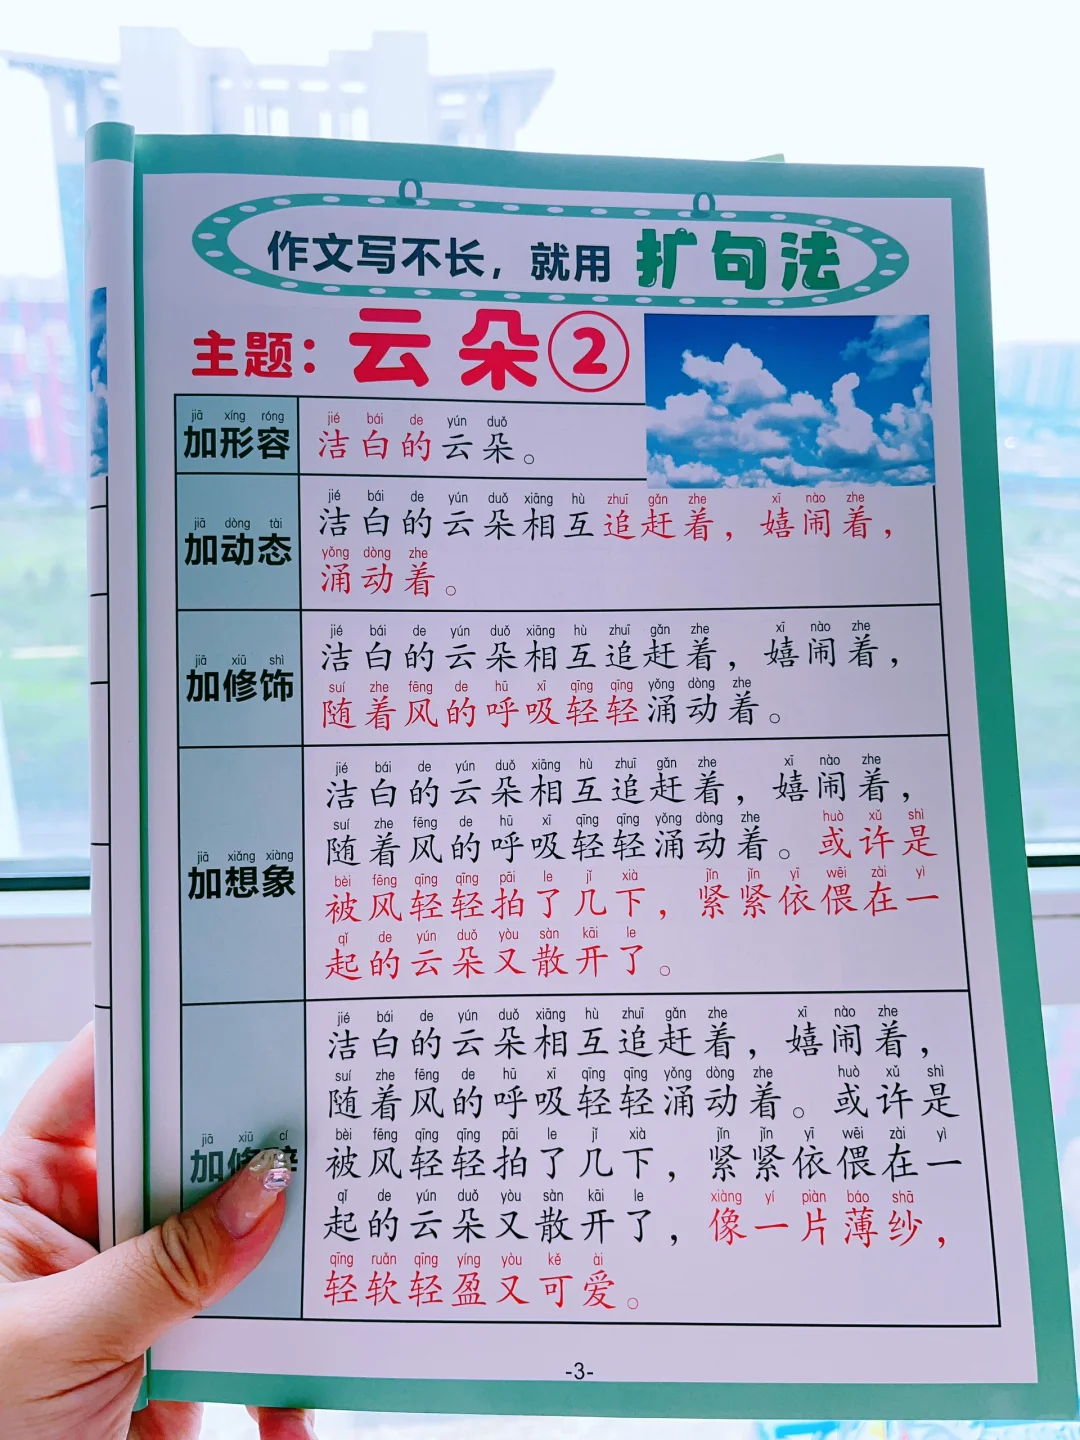 作文写不长，就用 扩句法
主题：云朵②
jiā xíng róng
加形容
jié bái de yún duǒ
洁白的云朵。
jiā dòng tài
加动态
jié bái de yún duǒ xiāng hù zhuī gǎn zhe xī nào zhe
洁白的云朵相互追赶着，嬉闹着，
yǒng dòng zhe
涌动着。
jiā xiū shì
加修饰
jié bái de yún duǒ xiāng hù zhuī gǎn zhe xī nào zhe
洁白的云朵相互追赶着，嬉闹着，
suí zhe fēng de hū xī qīng qīng yǒng dòng zhe
随着风的呼吸轻轻涌动着。
jiā xiǎng xiàng
加想象
jié bái de yún duǒ xiāng hù zhuī gǎn zhe xī nào zhe
洁白的云朵相互追赶着，嬉闹着，
suí zhe fēng de hū xī qīng qīng yǒng dòng zhe huò xǔ shì
随着风的呼吸轻轻涌动着。或许是
bèi fēng qīng qīng pāi le jǐ xià jǐn jǐn yī wēi zài yì
被风轻轻拍了几下，紧紧依偎在一
qǐ de yún duǒ yòu sàn kāi le
起的云朵又散开了。
jiā xiū cí
加修辞
jié bái de yún duǒ xiāng hù zhuī gǎn zhe xī nào zhe
洁白的云朵相互追赶着，嬉闹着，
suí zhe fēng de hū xī qīng qīng yǒng dòng zhe huò xǔ shì
随着风的呼吸轻轻涌动着。或许是
bèi fēng qīng qīng pāi le jǐ xià jǐn jǐn yī wēi zài yì
被风轻轻拍了几下，紧紧依偎在一
qǐ de yún duǒ yòu sàn kāi le xiàng yí piàn báo shā
起的云朵又散开了，像一片薄纱，
qīng ruǎn qīng yíng yòu kě ài
轻软轻盈又可爱。
-3-